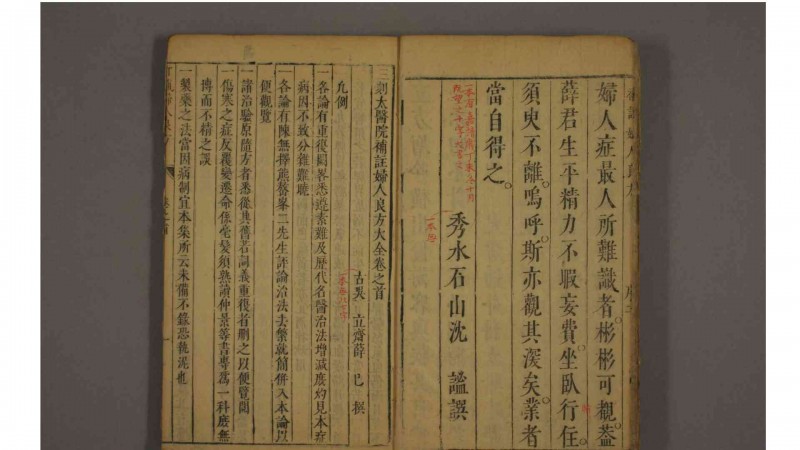 婦人症最人所難識者彬彬可觀葢
薛君生平精力不暇妄費坐臥行住
須臾不離嗚呼斯亦觀其深矣業者
當自得之
秀水石山沈 謐譔
三刻太醫院補註婦人良方大全卷之首
古吳 立齋薛 已 撰
凢例
一各論有重復闕畧悉遵素難及歷代名醫治法增減庶約見本症
病因不致分雜難曉
一各論有陳無擇熊鰲峯二先生評論治法去繁就簡併入本論以
便觀覽
一諸治驗原隨方者悉從其舊若詞義重復者刪之以便覽閱
一傷寒之症反覆變遷命係毫髮須熟讀仲景等書專爲一科庶無
傳而不精之誤
一製藥之法當因病制宜本集所云未備不錄恐執泥也